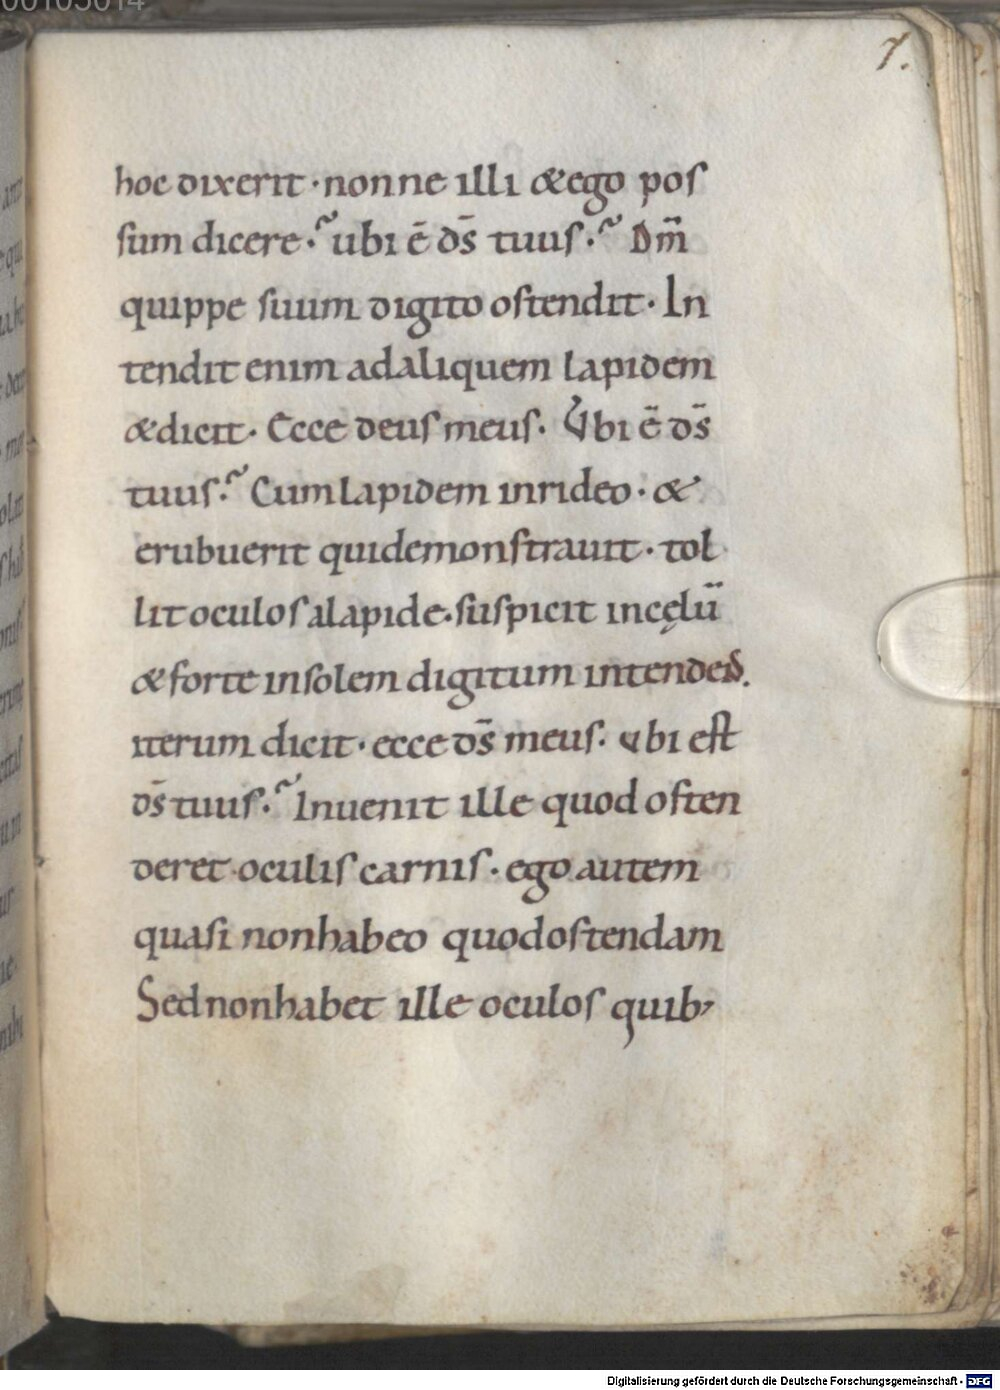 00105014
7.
hoc dixerit · nonne illi & ego pos
sum dicere ·? ubi ē ds̄ tuus ·? Dm̄
quippe suum digito ostendit · In
tendit enim ad aliquem lapidem
& dicit · Ecce deus meus · Vbi ē ds̄
tuus ·? Cum lapidem inrideo · &
erubuerit qui demonstrauit · tol
lit oculos a lapide · suspicit in cęlū
& forte in solem digitum intendens.
iterum dicit · ecce ds̄ meus · Vbi est
ds̄ tuus ·? Inuenit ille quod osten
deret oculis carnis · ego autem
quasi non habeo quod ostendam
Sed non habet ille oculos quib;
Digitalisierung gefördert durch die Deutsche Forschungsgemeinschaft - DFG